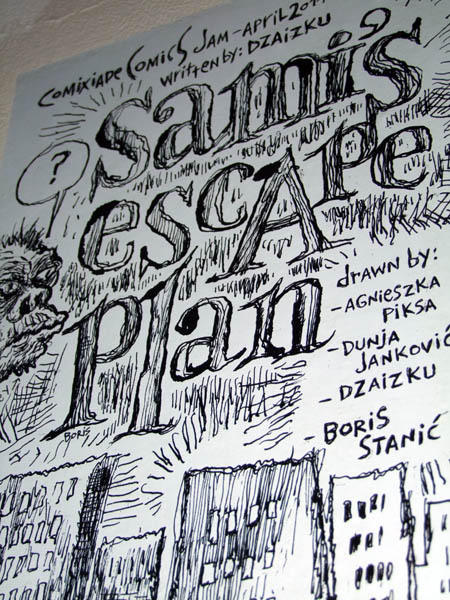 COMIXIADE COMICS JAM - APRIL
written by: DZAIZKU
sami's
escApe
plan
?
drawn by:
- AGNIESZKA
PIKSA
- DUNJA
JANKOVIĆ
- DZAIZKU
- BORIS
STANIĆ
BORIS